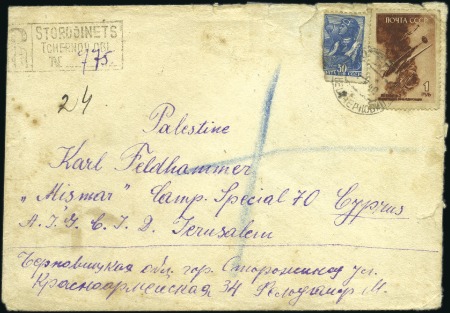 STOROJINETS
TCHERNOV.OBL.
№ 775.
ПОЧТА СССР
30
1
24
Palestine
Karl Feldhammer
„Mismar" Camp. Special 70 Cyprus
A.I.G. C.I.D. Jerusalem
Черновицкая обл. гор. Сторожинец ул.
Красноармейская 34 М.